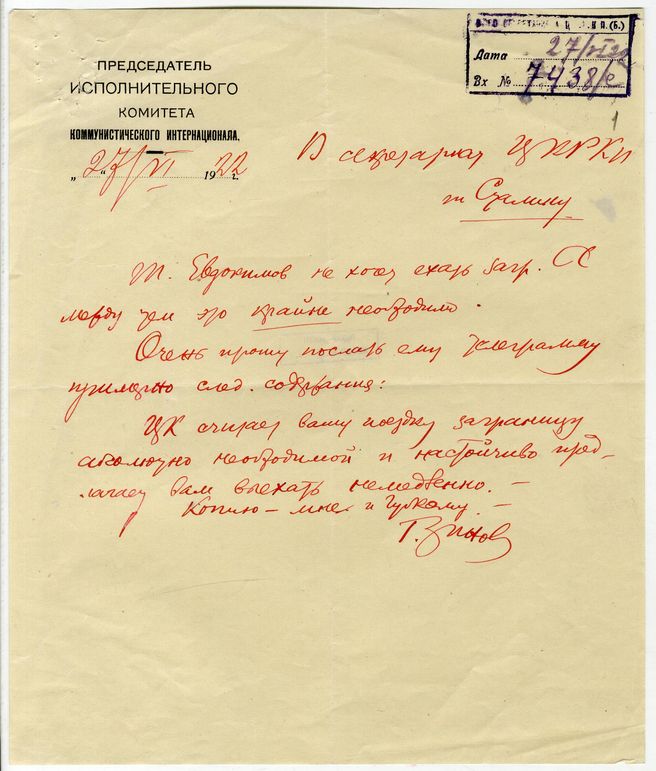 ПРЕДСЕДАТЕЛЬ
ИСПОЛНИТЕЛЬНОГО
КОМИТЕТА
КОММУНИСТИЧЕСКОГО ИНТЕРНАЦИОНАЛА.
„27“/VI 1922 г.
Ц. К. Р.К.П. (Б.)
Дата 27/VI 22
Вх № 7438/с
1
В секретариат ЦК РКП
т. Сталину
Т. Евдокимов не хочет ехать загр. А
между тем это крайне необходимо.
Очень прошу послать ему телеграмму
примерно след. содержания:
ЦК считает вашу поездку заграницу
абсолютно необходимой и настойчиво пред-
лагает вам выехать немедленно. —
Копию — мне и Гуткому. —
Г. Зинов